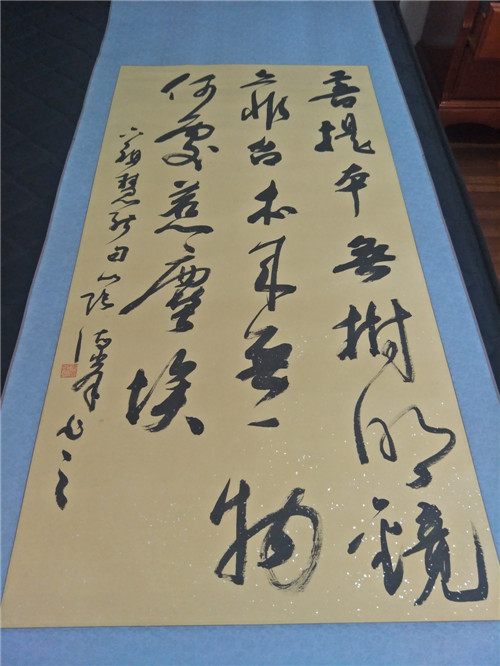 菩提本無樹明鏡
亦非台本來無一物
何處惹塵埃
六祖慧能句